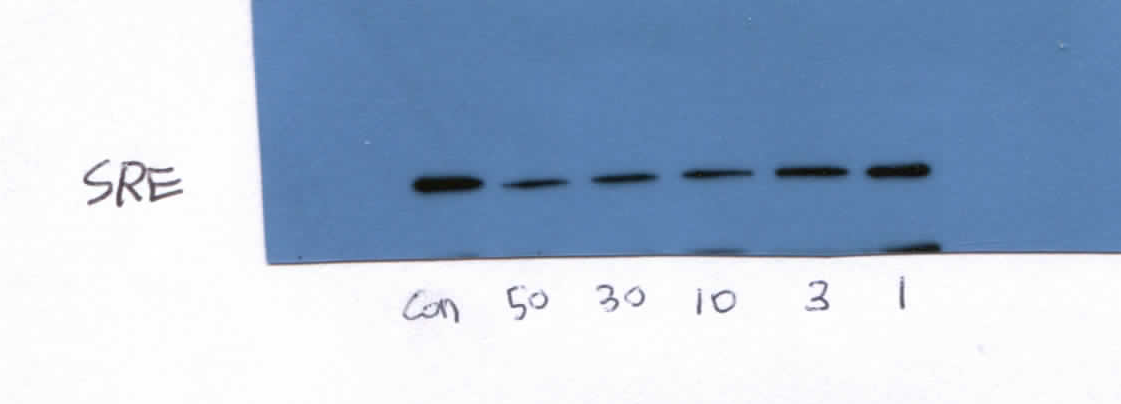 SRE
Con 50 30 10 3 1